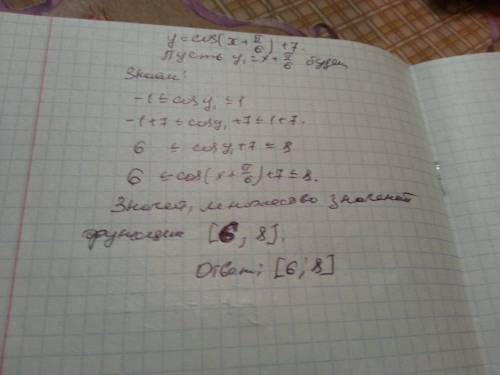 y = cos(x + π/6) + 7.
Пусть y₁ = x + π/6 будем
Знаем:
-1 ≤ cos y₁ ≤ 1
-1+7 ≤ cos y₁ + 7 ≤ 1+7.
6 ≤ cos y₁ + 7 ≤ 8
6 ≤ cos(x + π/6) + 7 ≤ 8.
Значит, множество значений
функции [6, 8].
Ответ: [6; 8]